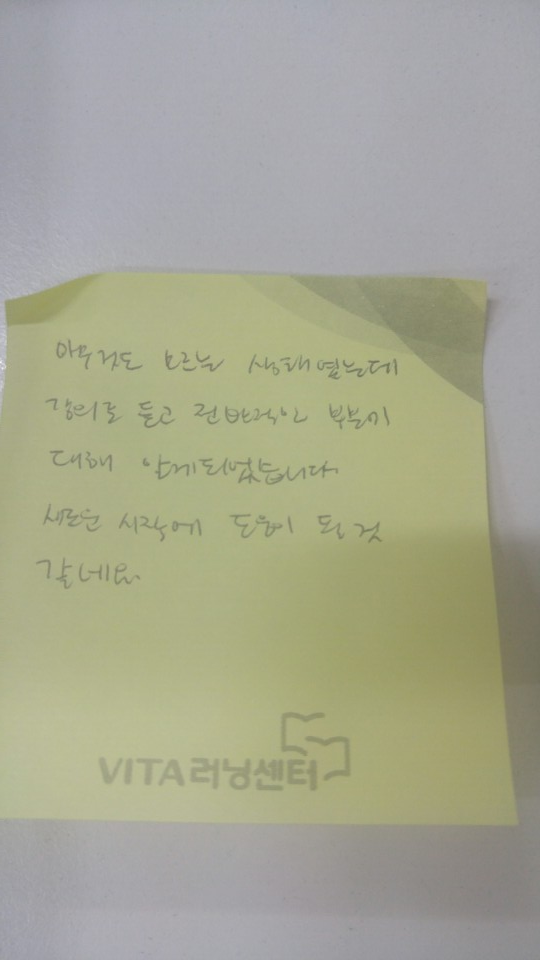 아무것도 모르는 상태였는데
강의로 듣고 전반적인 부분에
대해 알게되었습니다.
새로운 시작에 도움이 될 것
같네요.
VITA러닝센터